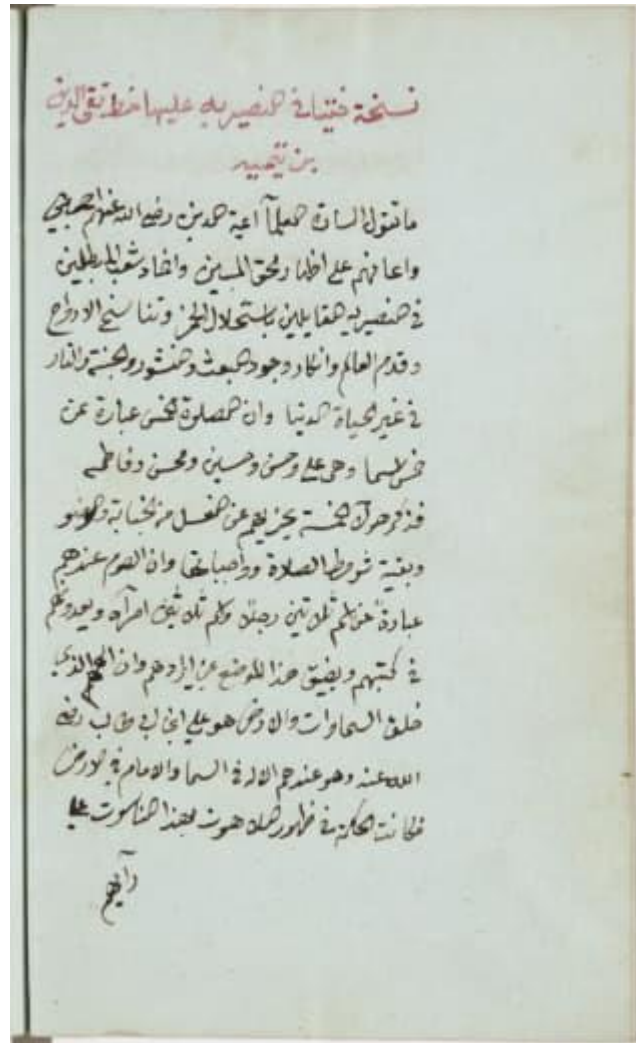 نسخة فتيا في النصيريه عليها خط تقي الدين
بن تيميه
ما تقول السادة العلمآ ائمة الدين رضي الله عنهم اجمعين
واعانهم على اظهار الحق المبين واخماد شعب المبطلين
في النصيريه القايلين باستحلال الخمر وتناسخ الارواح
وقدم العالم وانكار وجود البعث والنشور والجنة والنار
في غير الحياة الدنيا وان الصلوة الخمس عبارة عن
خمس اسما وهي علي وحسن وحسين ومحسن وفاطمه
فذكر هولآ الخمسة يجزيهم عن الغسل من الجنابة والوضو
وبقية شروط الصلاة وواجباتها وان الصوم عندهم
عبارة عن اسم ثلاثين رجلا واسم ثلاثين امرآة ويعدونهم
في كتبهم ويضيق هذا الموضع عن ايرادهم وان الههم الذي
خلق السماوات والارض هو علي ابن ابي طالب رضي
الله عنه وهو عندهم الاله في السما والامام في الارض
فكانت الحكمة في ظهور اللاهوت بهذا الناسوت على
رآيهم